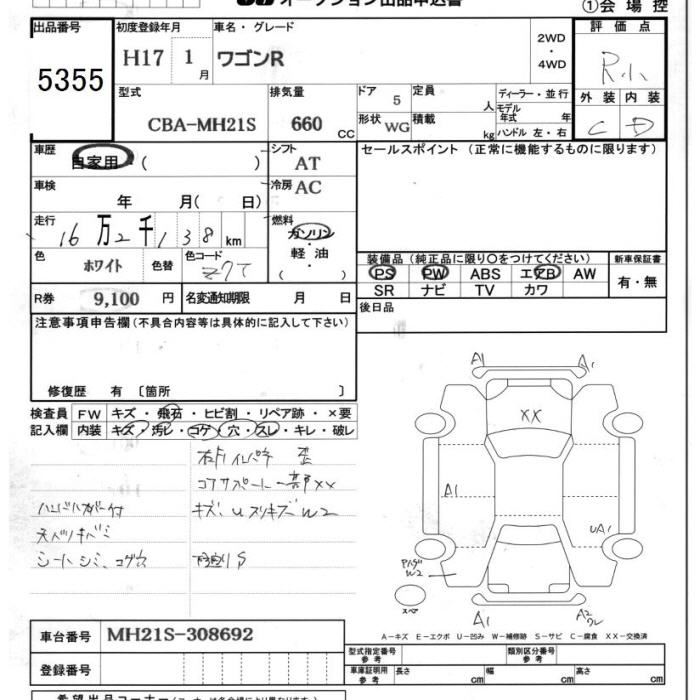 オークション出品申込書
①会場控
出品番号 5355
初度登録年月 H17 1月
車名・グレード ワゴンR
2WD・4WD
評価点 R小
外装 内装
C D
型式 CBA-MH21S
排気量 660 CC
ドア 5
定員 人
ディーラー・並行
モデル年式 年
形状 WG
積載 kg
ハンドル 左・右
車歴 自家用・( )
シフト AT
セールスポイント (正常に機能するものに限ります)
車検 年 月( 日)
冷房 AC
走行 16万2千138km
燃料 ガソリン・軽油・( )
色 ホワイト 色替
色コード
装備品 (純正品に限り○をつけてください)
PS PW ABS エアB AW
SR ナビ TV カワ
新車保証書 有・無
R券 9,100 円
名変通知期限 月 日
後日品
注意事項申告欄 (不具合内容等は具体的に記入して下さい)
修復歴 有 〔箇所 〕
検査員記入欄
FW キズ・飛石・ヒビ割・リペア跡・×要
内装 キズ・汚レ・コゲ・穴・スレ・キレ・破レ
右リインパネ 歪
コアサポート一部XX
キズ、Uスリキズ W2
シートシミ、コゲ穴
下廻りS
A1 A1
XX
A1
UA1
W2
スペ
A1 A2
A-キズ E-エクボ U-凹み W-補修跡 S-サビ C-腐食 XX-交換済
車台番号 MH21S-308692
登録番号
型式指定番号 参考
類別区分番号 参考
車庫証明用 参考 長さ cm 幅 cm 高さ cm
希望出品コーナー